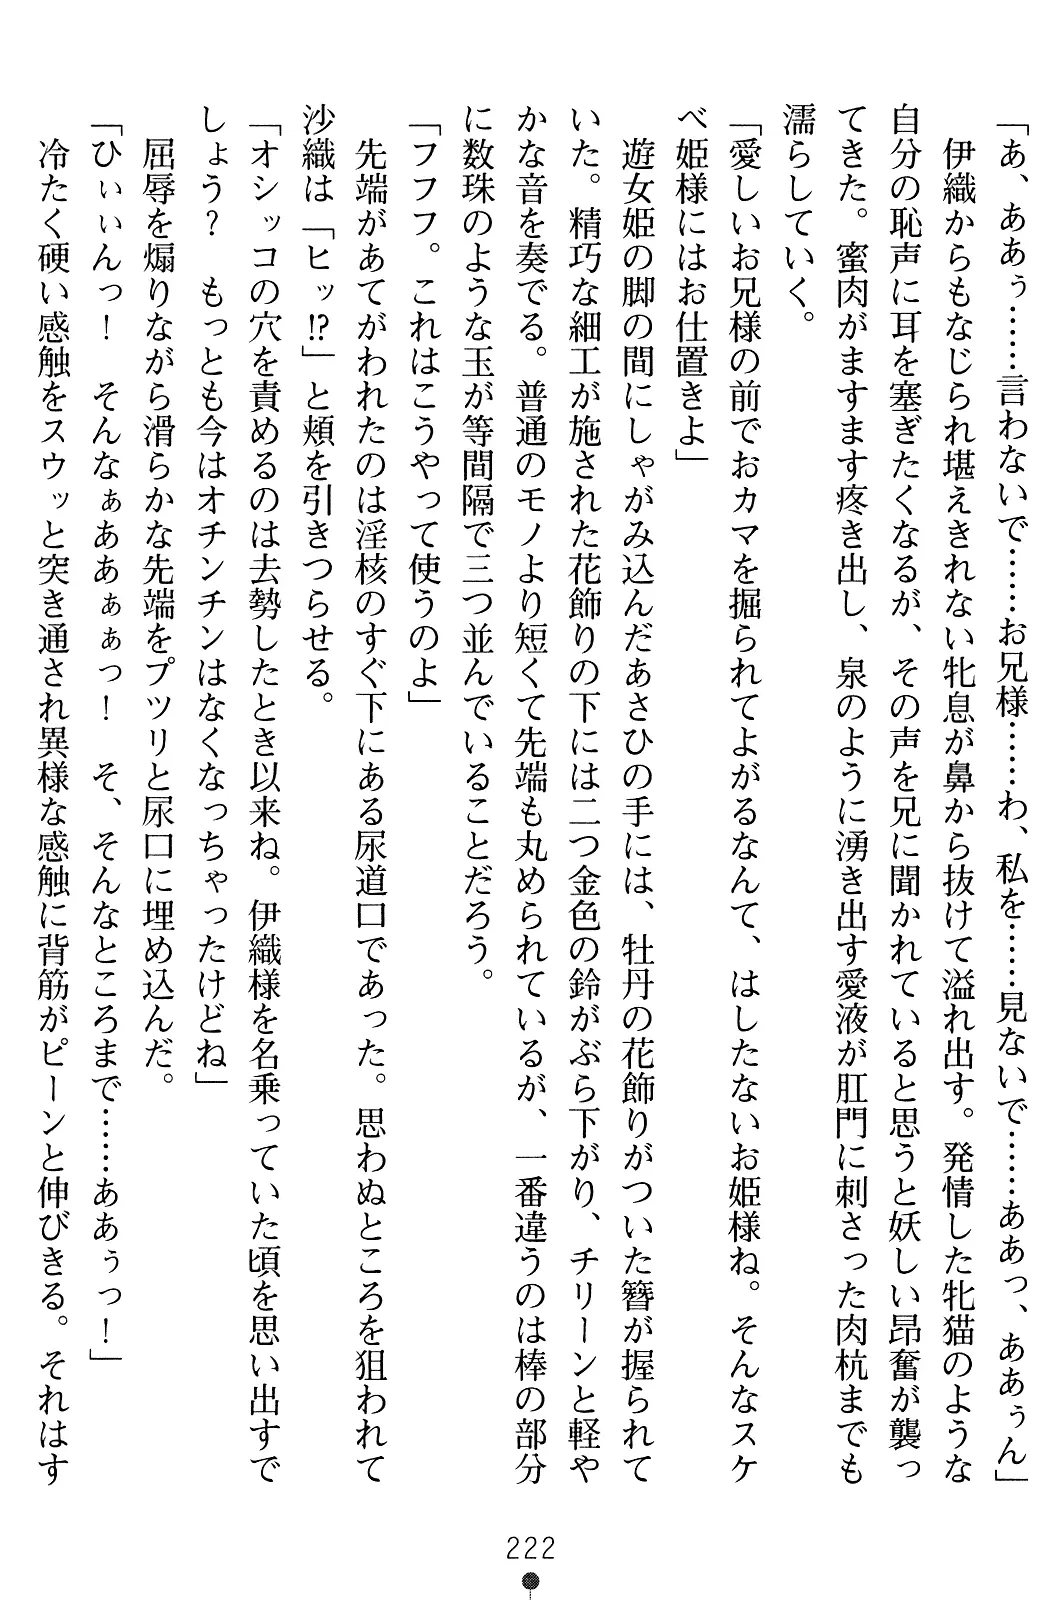 「あ、ああぅ……言わないで……お兄様……わ、私を……見ないで……ああっ、ああぅん」
伊織からもなじられ堪えきれない牝息が鼻から抜けて溢れ出す。発情した牝猫のような
自分の恥声に耳を塞ぎたくなるが、その声を兄に聞かれていると思うと妖しい昂奮が襲っ
てきた。蜜肉がますます疼き出し、泉のように湧き出す愛液が肛門に刺さった肉杭までも
濡らしていく。
「愛しいお兄様の前でおカマを掘られてよがるなんて、はしたないお姫様ね。そんなスケ
べ姫様にはお仕置きよ」
遊女姫の脚の間にしゃがみ込んだあさひの手には、牡丹の花飾りがついた簪が握られて
いた。精巧な細工が施された花飾りの下には二つ金色の鈴がぶら下がり、チリーンと軽や
かな音を奏でる。普通のモノより短くて先端も丸められているが、一番違うのは棒の部分
に数珠のような玉が等間隔で三つ並んでいることだろう。
「フフフ。これはこうやって使うのよ」
先端があてがわれたのは淫核のすぐ下にある尿道口であった。思わぬところを狙われて
沙織は「ヒッ!?」と頬を引きつらせる。
「オシッコの穴を責めるのは去勢したとき以来ね。伊織様を名乗っていた頃を思い出すで
しょう？　もっとも今はオチンチンはなくなっちゃったけどね」
屈辱を煽りながら滑らかな先端をプツリと尿口に埋め込んだ。
「ひぃぃんっ！　そんなぁああぁぁっ！　そ、そんなところまで……ああぅっ！」
冷たく硬い感触をスウッと突き通され異様な感触に背筋がピーンと伸びきる。それはす
222